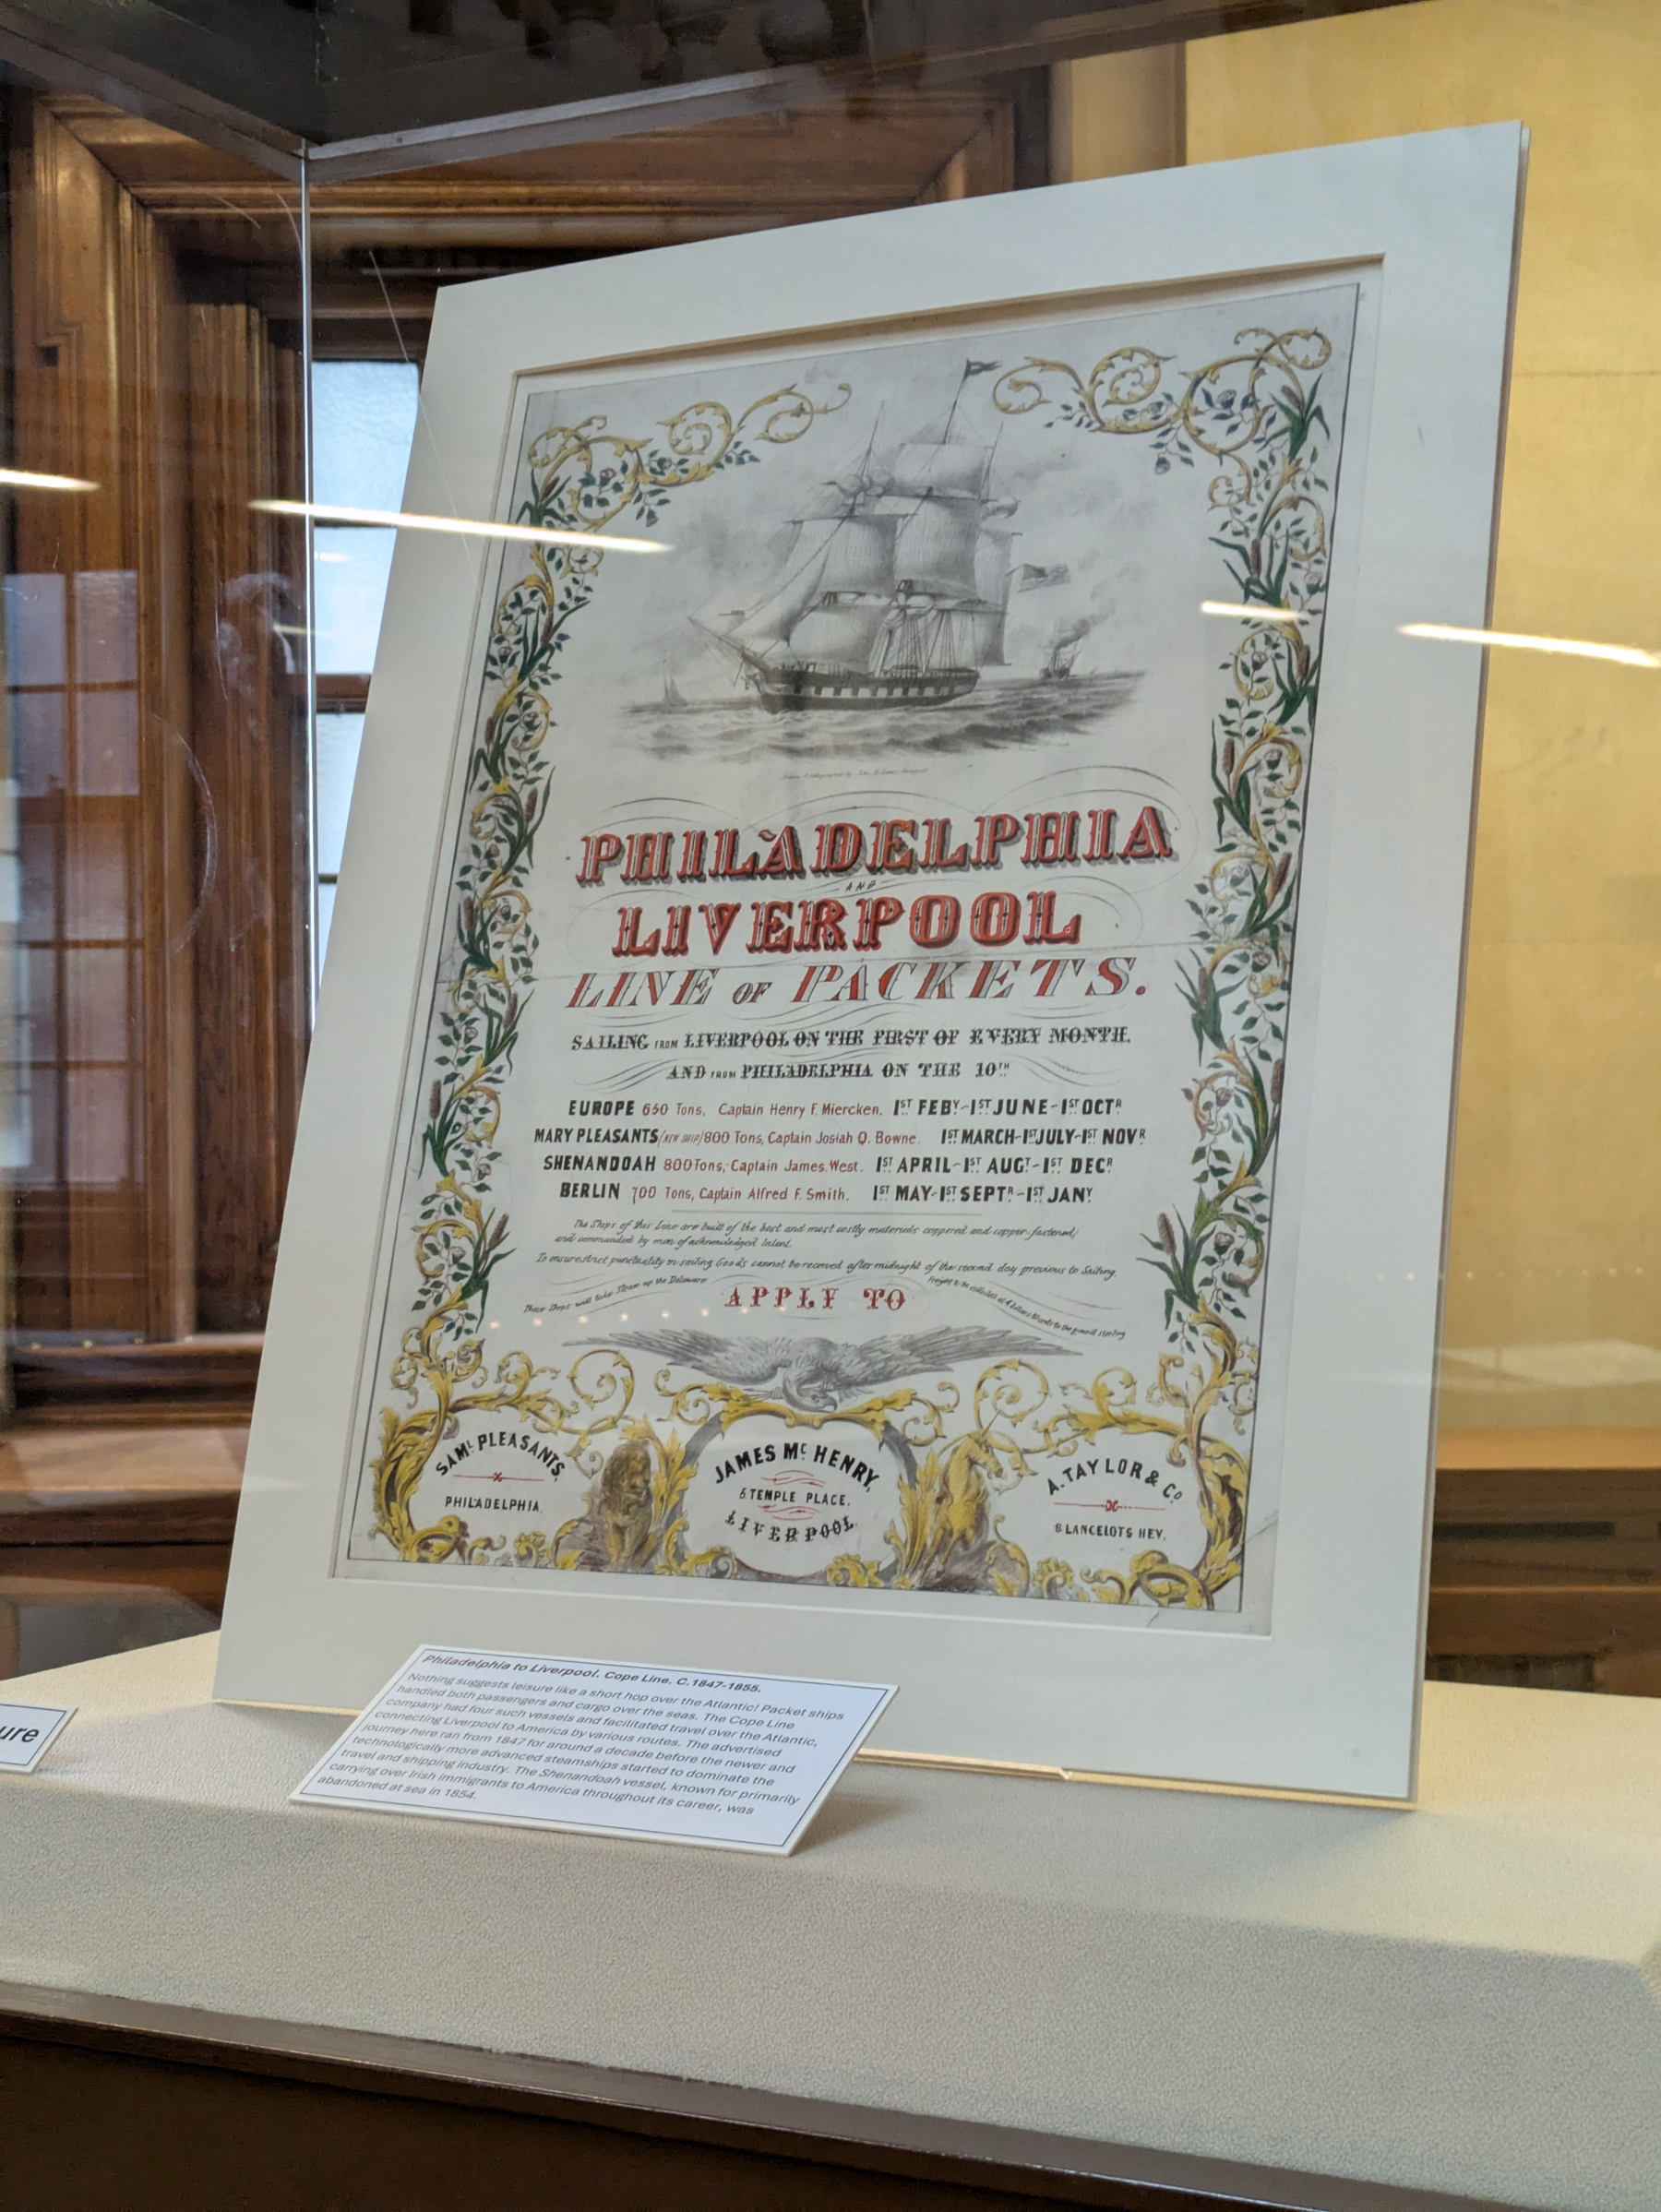 PHILADELPHIA
AND
LIVERPOOL
LINE OF PACKETS.
SAILING FROM LIVERPOOL ON THE FIRST OF EVERY MONTH,
AND FROM PHILADELPHIA ON THE 10TH
EUROPE 650 Tons, Captain Henry F. Miercken. 1ST FEBY-1ST JUNE-1ST OCTR
MARY PLEASANTS (NEW SHIP) 800 Tons, Captain Josiah Q. Bowne. 1ST MARCH-1ST JULY-1ST NOVR
SHENANDOAH 800 Tons, Captain James West. 1ST APRIL-1ST AUGT-1ST DECR
BERLIN 700 Tons, Captain Alfred F. Smith. 1ST MAY-1ST SEPTR-1ST JANY
The Ships of this Line are built of the best and most costly materials coppered and copper-fastened,
and commanded by men of acknowledged talent.
To ensure strict punctuality in sailing Goods cannot be received after midnight of the second day previous to Sailing.
These Ships will take Steam up the Delaware
Freight to be collected at 4 dollars 80 cents to the pound sterling
APPLY TO
SAML PLEASANTS,
PHILADELPHIA
JAMES MC HENRY,
5 TEMPLE PLACE,
LIVERPOOL
A. TAYLOR & CO
8 LANCELOTS HEY.
Philadelphia to Liverpool. Cope Line. C.1847-1855.
Nothing suggests leisure like a short hop over the Atlantic! Packet ships
handled both passengers and cargo over the seas. The Cope Line
company had four such vessels and facilitated travel over the Atlantic,
connecting Liverpool to America by various routes. The advertised
journey here ran from 1847 for around a decade before the newer and
technologically more advanced steamships started to dominate the
travel and shipping industry. The Shenandoah vessel, known for primarily
carrying over Irish immigrants to America throughout its career, was
abandoned at sea in 1854.
ure